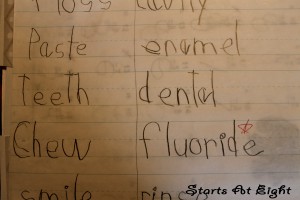 Floss cavity
Paste enamel
Teeth dental
Chew fluoride
smile rinse
Starts At Eight